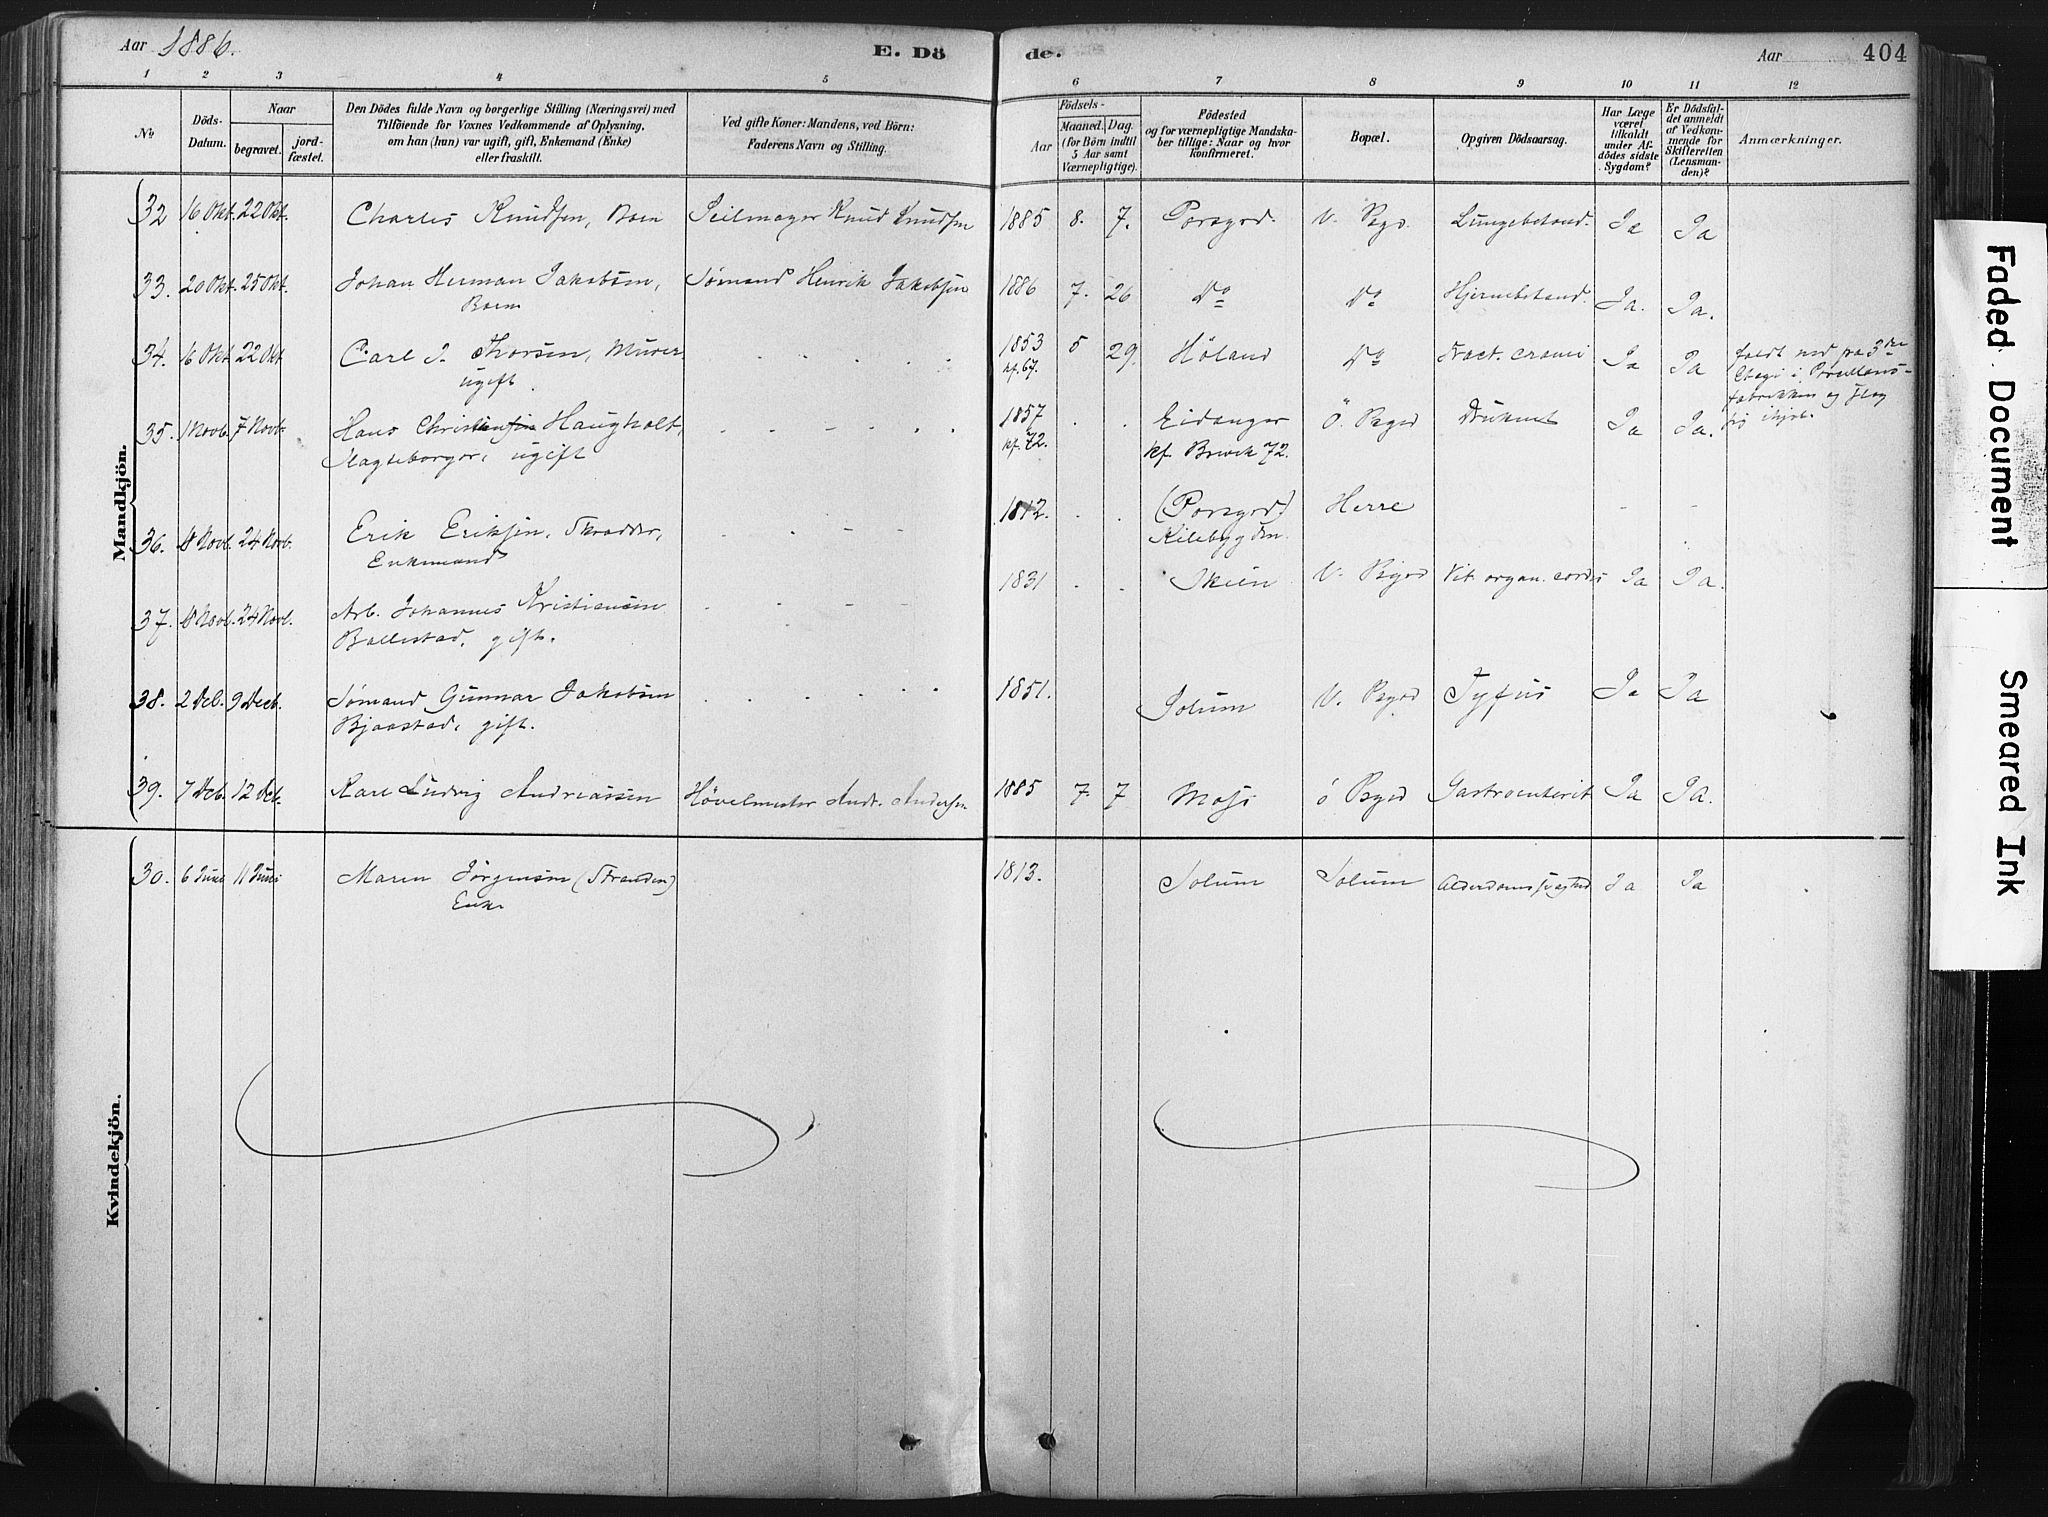 Aar 1886.
E. Dö
de.
Aar
404
1 2 3 4 5 6 7 8 9 10 11 12
No
Döds-
Datum.
Naar
begravet.
jord-
fæstet.
Den Dödes fulde Navn og borgerlige Stilling (Næringsvei) med
Tilföiende for Voxnes Vedkommende af Oplysning,
om han (hun) var ugift, gift, Enkemand (Enke)
eller fraskilt.
Ved gifte Koner: Mandens, ved Börn:
Faderens Navn og Stilling
Födsels-
Aar
Maaned.
Dag.
(for Börn indtil
5 Aar samt
Værnepligtige).
Födested
og for værnepligtige Mandska-
ber tillige: Naar og hvor
konfirmeret.
Bopæl.
Opgiven Dödsaarsag.
Har Læge
været
tilkaldt
under Af-
dödes sidste
Sygdom?
Er Dödsfal-
det anmeldt
af Vedkom-
mende for
Skifteretten
(Lensman-
den)?
Anmærkninger.
Mandkjön.
32 16 Okt. 22 Okt. Charles Knudsen, Barn Seilmager Knud Knudsen 1885 8. 7. Porsgrd. V. Psgr. Lungebetænd. Ja Ja
33. 20 Okt. 25 Okt. Johan Herman Jakobsen, Sømand Henrik Jakobsen 1886 7. 26 Do Do Hjernebetænd. Ja. Ja.
Barn
34. 16 Okt 22 Okt Carl J. Thorsen, Murer, 1853 5 29. Høland Do Fract. cranii Ja Ja faldt ned fra 3die
ugift. kf. 67. Etage i Porcellæns-
fabrikken og slog
sig ihjel.
35. 1 Novb. 7 Novb. Hans Christensen Haugholt, 1857 . . Eidanger Ö. Psgrd Druknet Ja Ja.
Slagteborger, ugift kf. 72. kf. Brevik 72.
36. 18 Novb. 24 Novb. Erik Eriksen, Skrædder, 1812. . . (Porsgrd) Herre - -
Enkemand Kilebygden.
37. 18 Novb. 24 Novb. Arb. Johannes Kristiansen 1831 . . Skien V. Psgrd Vit. organ. cordis Ja Ja.
Ballestad, gift.
38. 2 Dcb. 9 Decb. Sømand Gunnar Jakobsen 1851. Solum V. Psgrd Tyfus Ja Ja
Bjaastad, gift.
39. 7 Dcb. 12 Dcb. Karl Ludvig Andreassen Høvelmester Andr. Andersen 1885 7. 7 Moss ö Psgrd Gastroenterit Ja Ja.
Kvindekjön.
30. 6 Juni 11 Juni Maren Jørgensen (Stranden) 1813. Solum Solum Alderdomssvaghed Ja Ja
Enke
Faded Document
Smeared Ink